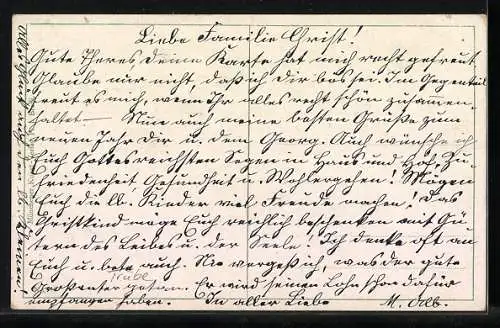 Liebe Familie Christ!
Gute Theres, Deine Karte hat mich recht gefreut.
Glaube mir nicht, daß ich dir bös sei. Im Gegenteil
freut es mich, wenn Ihr alles recht schön zusammen
haltet. — Nun auch meine besten Grüße zum
neuen Jahr Dir u. dem Georg. Auch wünsche ich
Euch Gottes reichsten Segen in Haus und Hof, Zu-
friedenheit Gesundheit u. Wohlergehen! Mögen
Euch die lb. Kinder viel Freude machen! Das
Christkind möge Euch reichlich beschenken mit Gü-
tern des Leibes u. der Seele. Ich denke oft an
Euch u. bete auch. Nie vergeß ich, was der gute
Großvater getan. Er wird seinen Lohn dafür
empfangen haben. In aller Liebe
M.